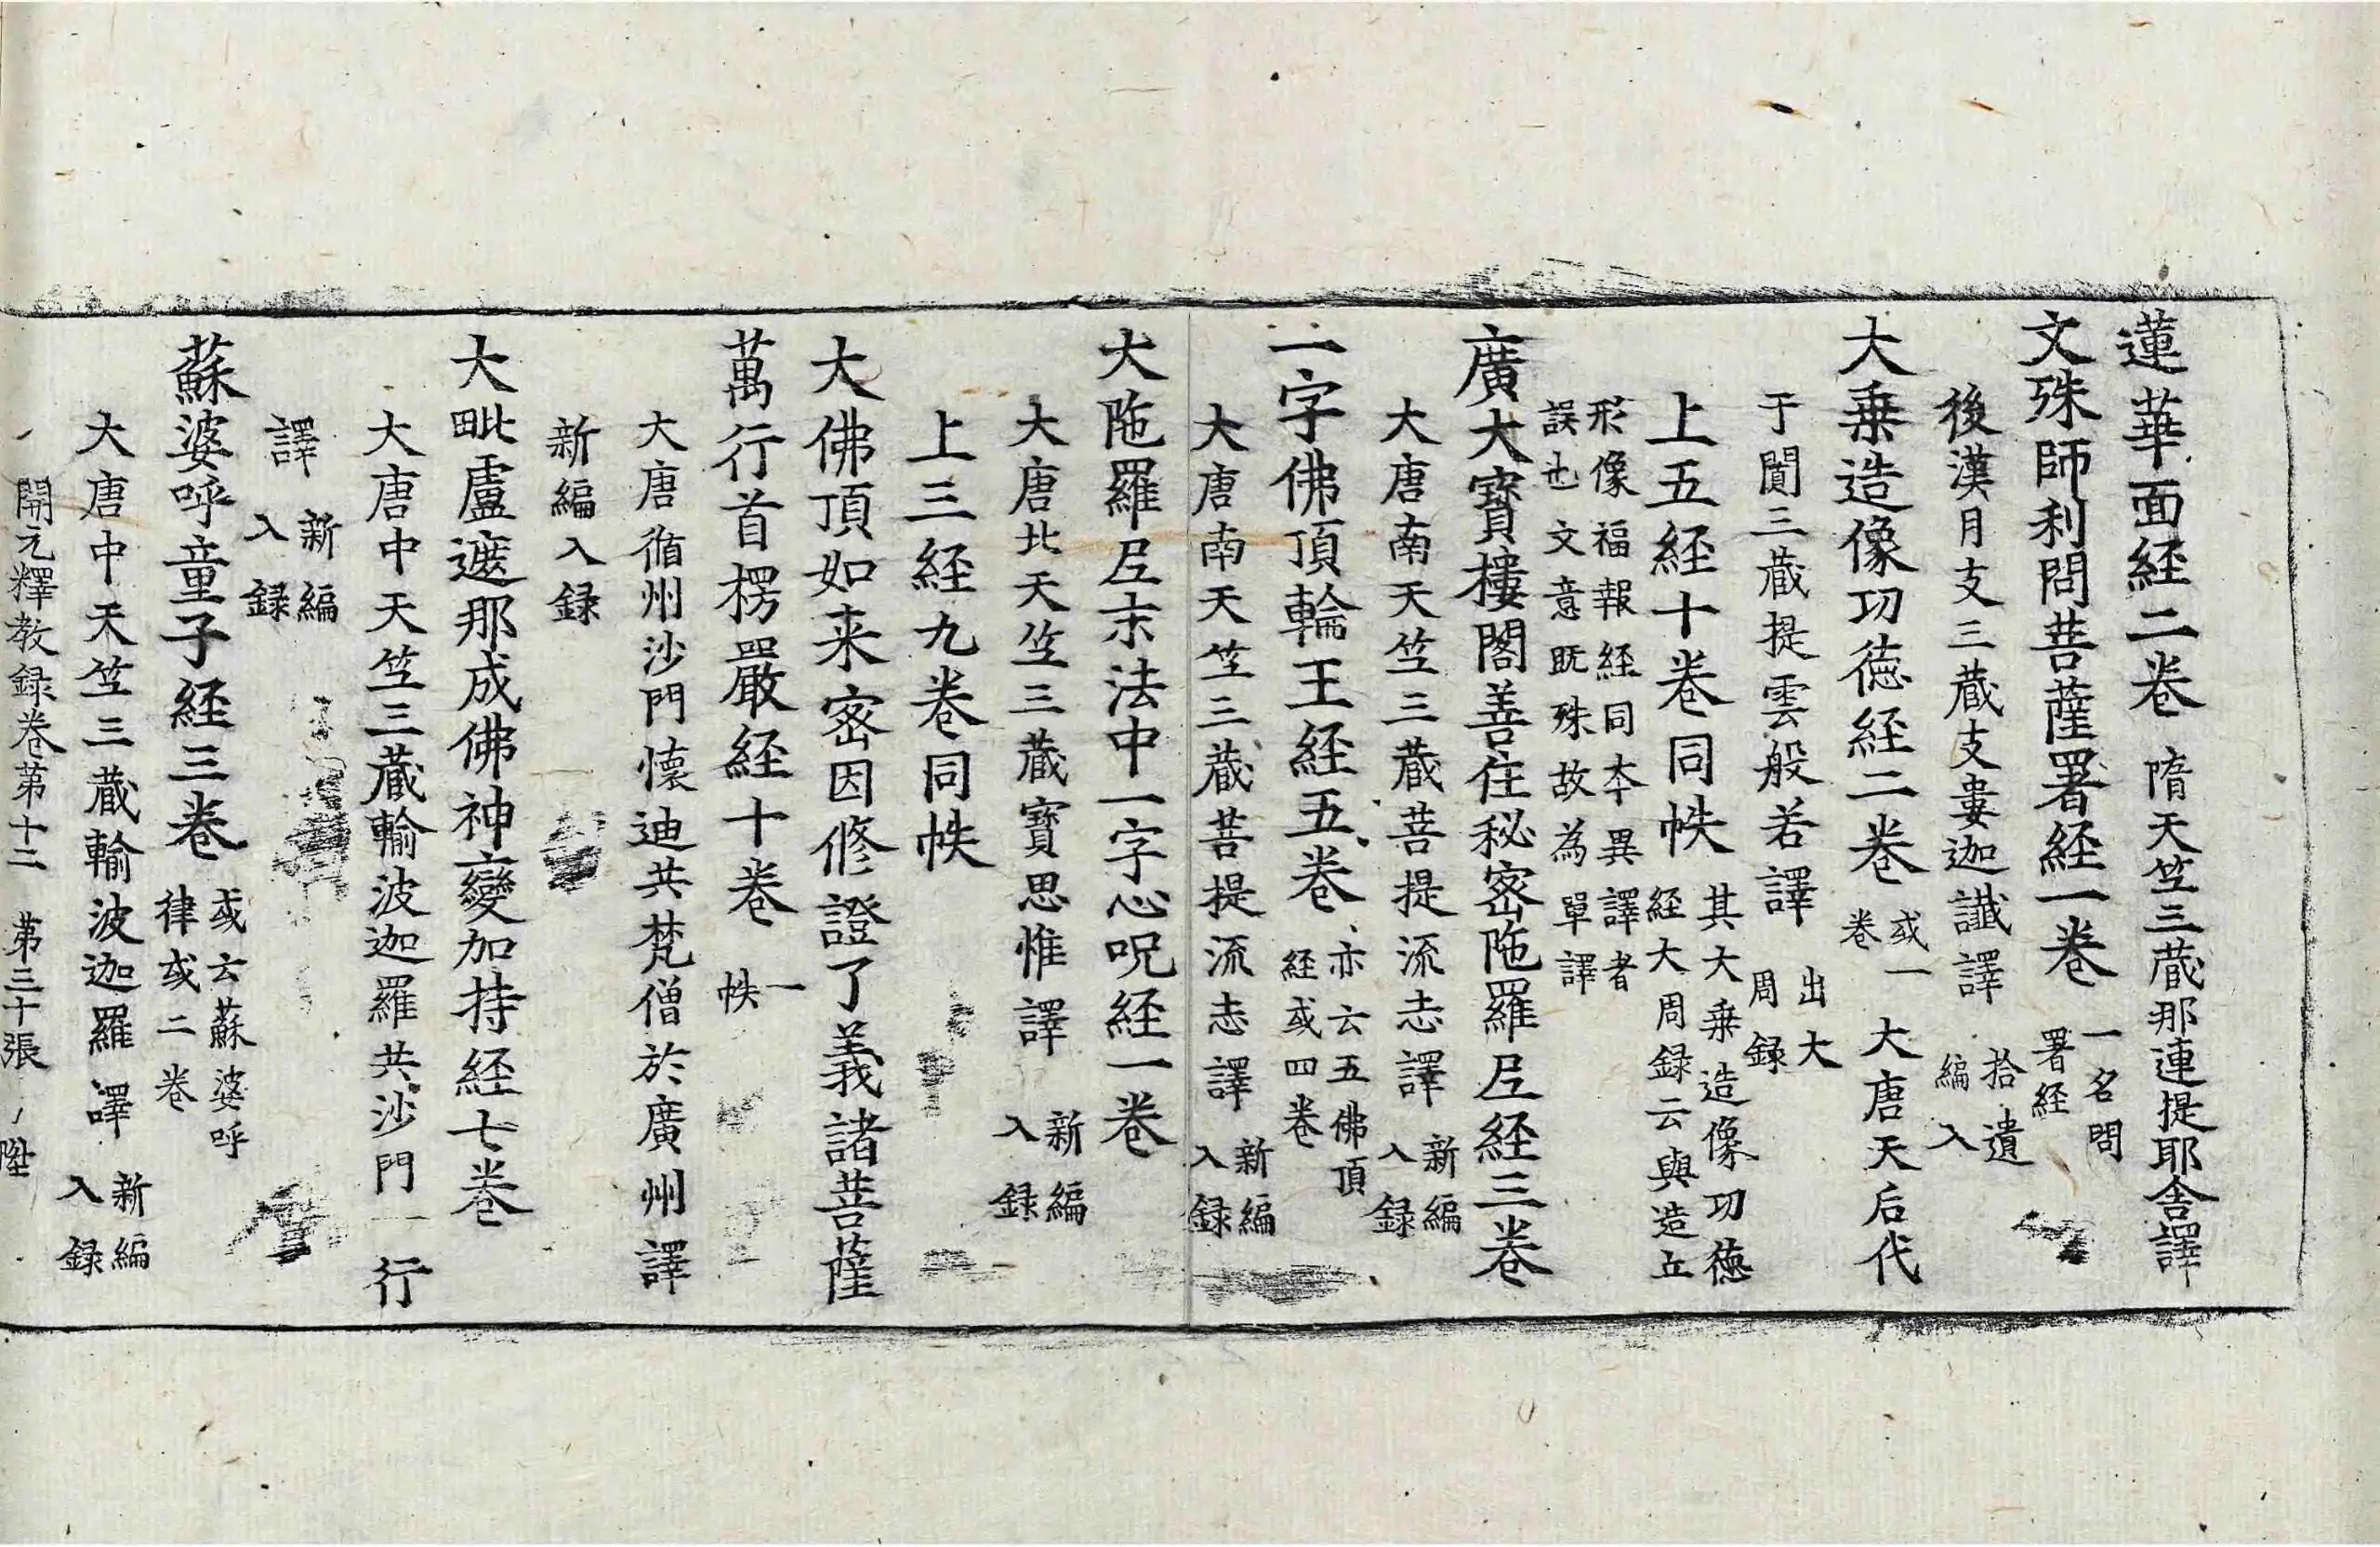 蓮華面経二卷隋天竺三蔵那連提耶舍譯
文殊師利問菩薩署経一卷一名問署経
後漢月支三蔵支婁迦讖譯拾遺編入
大乗造像功徳経二卷或一卷大唐天后代
于闐三蔵提雲般若譯出大周録
上五経十卷同帙其大乗造像功徳経大周録云與造立
形像福報経同本異譯者誤也文意既殊故為單譯
廣大寳樓閣善住秘密陁羅尼経三卷
大唐南天竺三蔵菩提流志譯新編入録
一字佛頂輪王経五卷亦云五佛頂経或四卷
大唐南天竺三蔵菩提流志譯新編入録
大陁羅尼末法中一字心呪経一卷
大唐北天竺三蔵寳思惟譯新編入録
上三経九卷同帙
大佛頂如来密因修證了義諸菩薩
萬行首楞嚴経十卷一帙
大唐循州沙門懐迪共梵僧於廣州譯
新編入録
大毗盧遮那成佛神變加持経七卷
大唐中天竺三蔵輸波迦羅共沙門一行
譯新編入録
蘇婆呼童子経三卷或云蘇婆呼律或二卷
大唐中天竺三蔵輸波迦羅譯新編入録
開元釋教録卷第十二 第三十張 陞